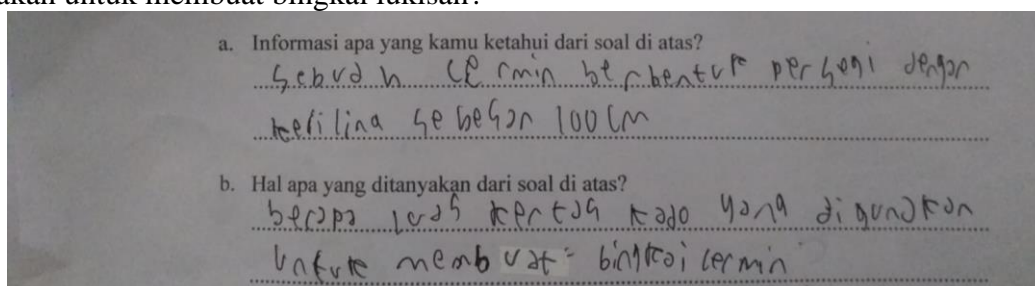 akan untuk membuat bingkai lukisan?
a. Informasi apa yang kamu ketahui dari soal di atas?
Sebuah cermin berbentuk persegi dengan
keliling sebesar 100 cm
b. Hal apa yang ditanyakan dari soal di atas?
berapa luas kertas kado yang digunakan
untuk membuat bingkai cermin